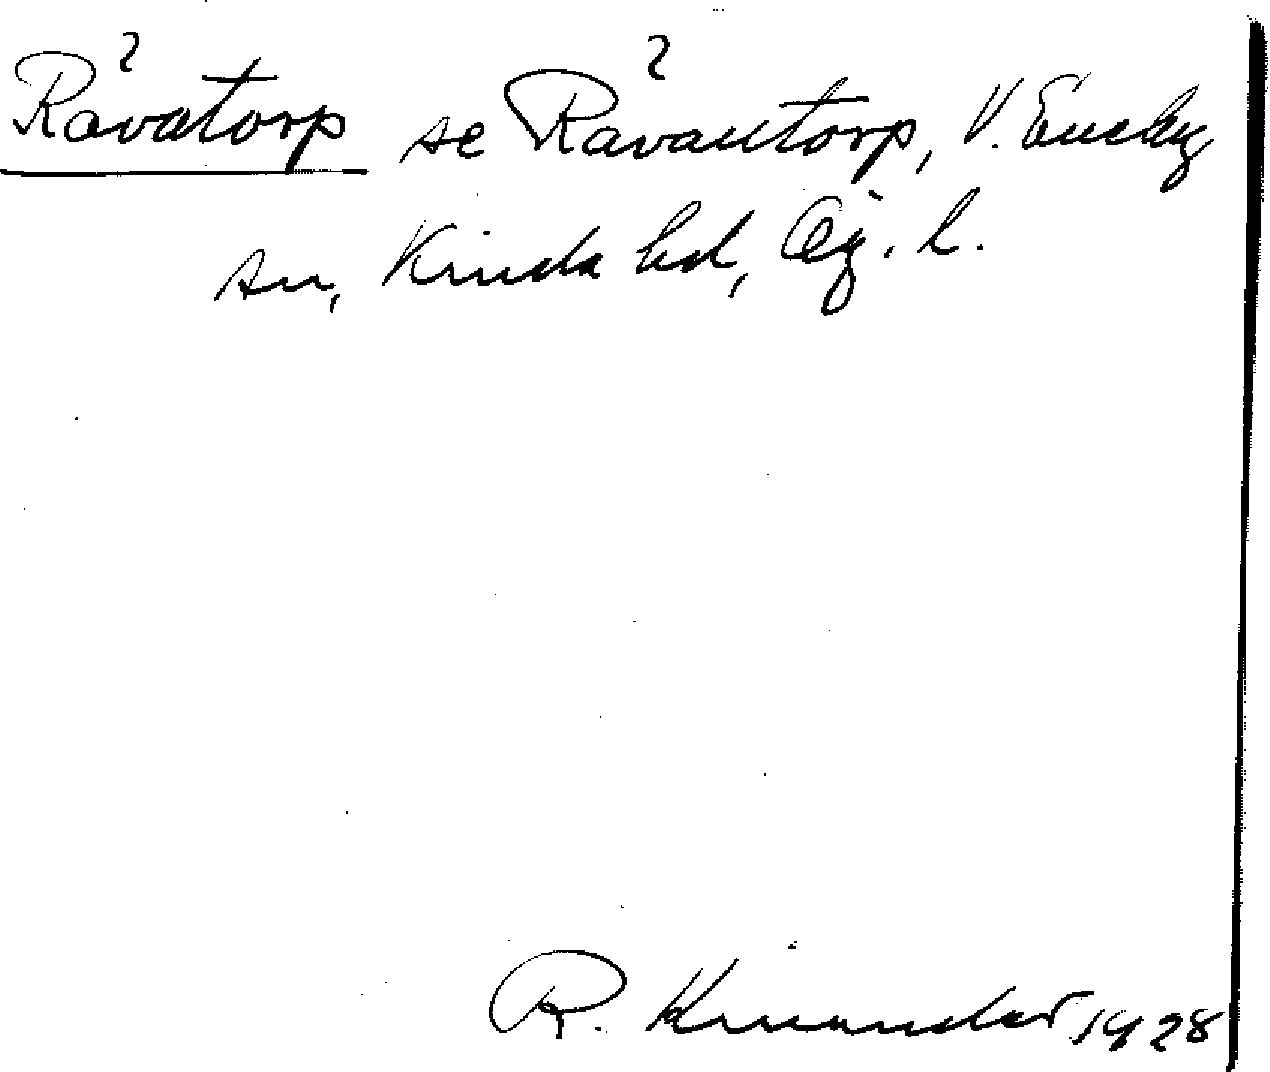 Råvatorp se Råvantorp, V. Eneby
sn, Kinda hd, Ög. l.
R. Kinander 1928